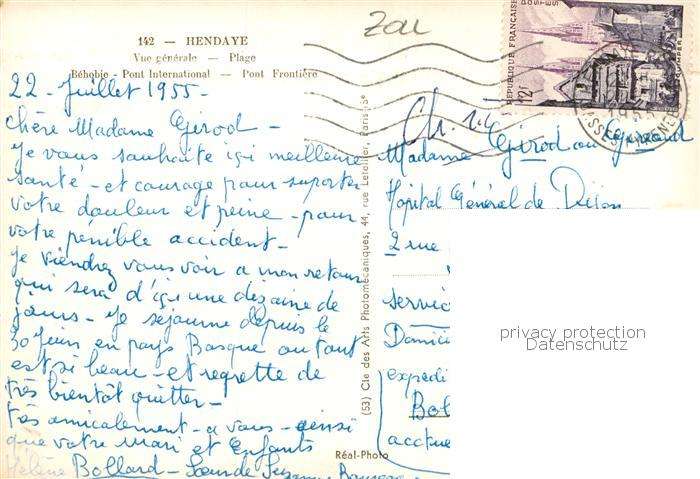 Zou
142 — HENDAYE
Vue générale — Plage
Béhobie - Pont International — Pont Frontière
22 - Juillet 1955 -
Chère Madame Girod -
Je vous souhaite ici meilleure
santé - et courage pour suporter
votre douleur et peine - pour
votre pénible accident -
Je viendrez vous voir a mon retour
qui sera d'ici une dizaine de
jours - Je séjourne depuis le
30 Juin en pays Basque ou tout
est si beau - et regrette de
très bientôt quitter -
très amicalement - a vous - ainsi
que votre Mari et Enfants
Hélène Bollard - Soeur de
(53) Cie des Arts Photomécaniques, 44, rue Letellier, Paris-15e
Réal-Photo
REPUBLIQUE FRANÇAISE
POSTES
12F
QUIMPER
Ch.
Madame Girod ou Girard
Hôpital Général de Dijon
2 rue
servic
Domici
expedi
Bol
actue
privacy protection
Datenschutz